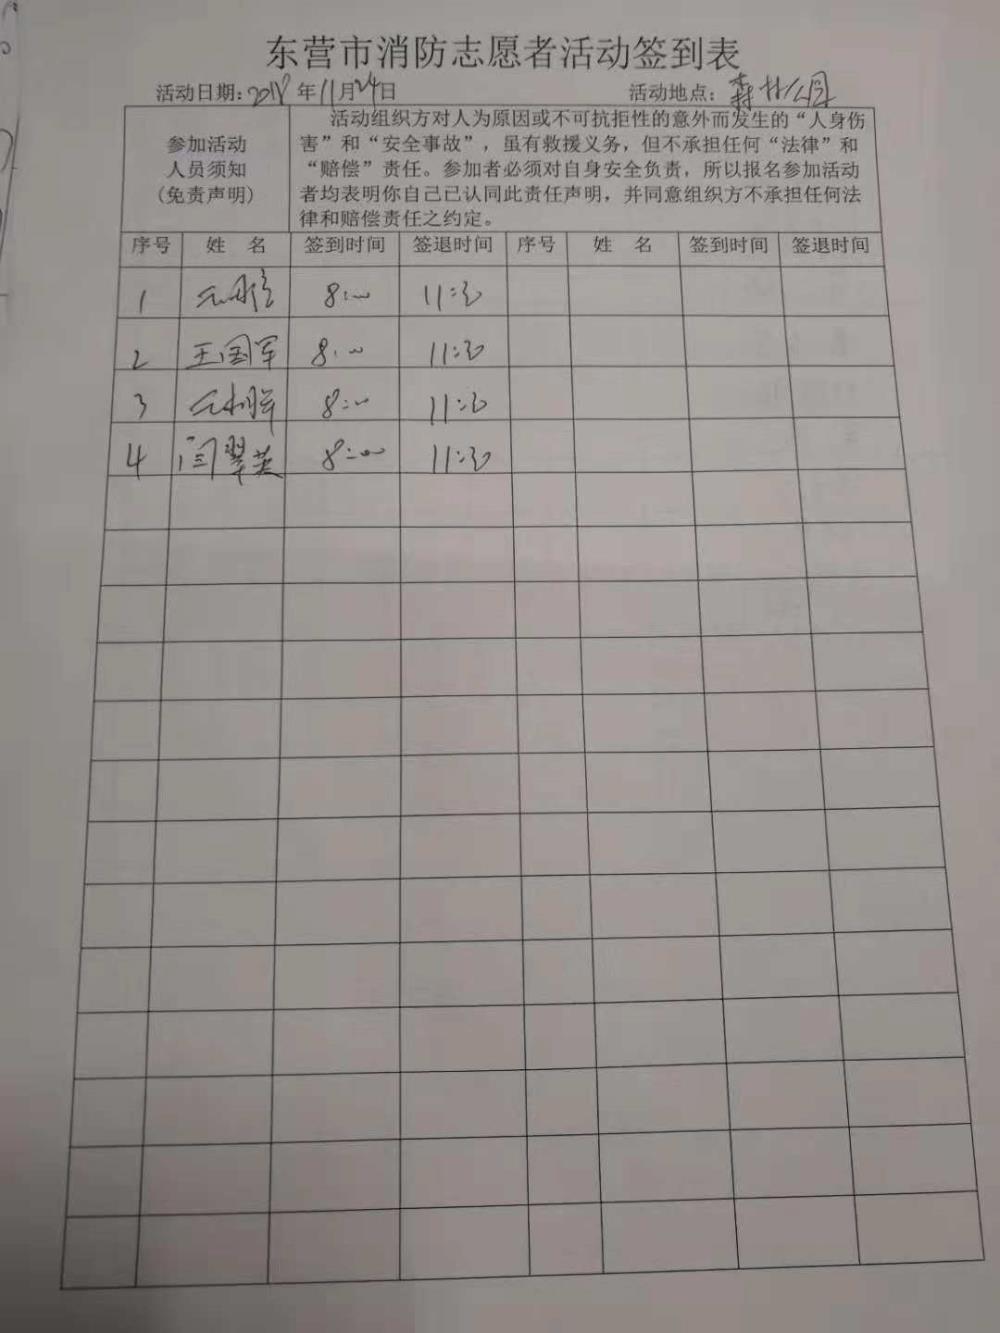 东营市消防志愿者活动签到表
活动日期：2018年11月24日 活动地点：森林公园
参加活动
人员须知
(免责声明)
活动组织方对人为原因或不可抗拒性的意外而发生的“人身伤
害”和“安全事故”，虽有救援义务，但不承担任何“法律”和
“赔偿”责任。参加者必须对自身安全负责，所以报名参加活动
者均表明你自己已认同此责任声明，并同意组织方不承担任何法
律和赔偿责任之约定。
序号 姓 名 签到时间 签退时间 序号 姓 名 签到时间 签退时间
1 8:00 11:30
2 王国军 8:00 11:30
3 8:00 11:30
4 闫翠英 8:00 11:30